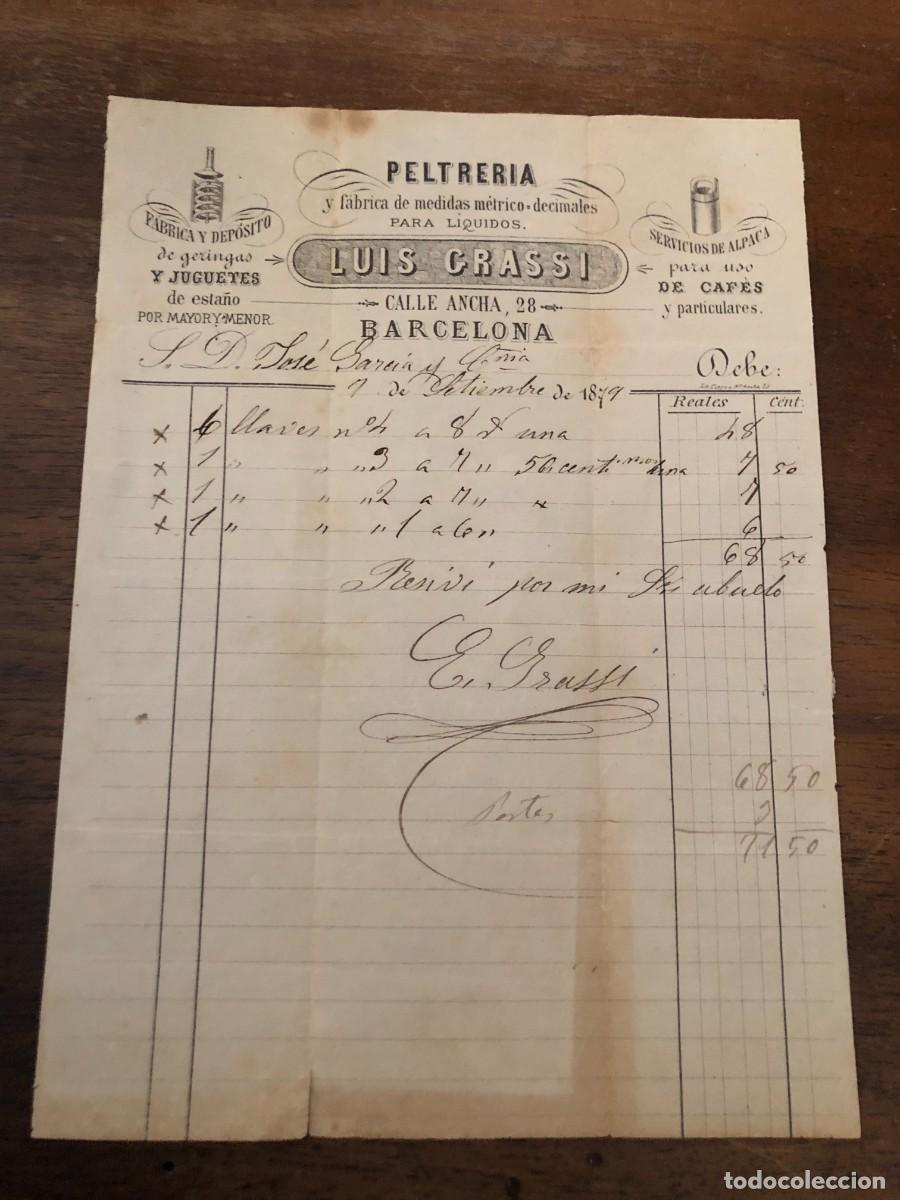 PELTRERIA
y fábrica de medidas métrico-decimales
PARA LIQUIDOS.
LUIS GRASSI
CALLE ANCHA, 28
BARCELONA
FABRICA Y DEPÓSITO
de geringas
Y JUGUETES
de estaño
POR MAYOR Y MENOR.
SERVICIOS DE ALPACA
para uso
DE CAFÉS
y particulares.
S. D. José García y Cñia
Debe:
7 de Setiembre de 1879
Reales Cent.
x 6 llaves nº 4 a 8 una 48
x 1 " " " 3 a 7 " 50 centimos una 7 50
x 1 " " " 2 a 7 " " 7
x 1 " " " 1 a 6 " 6
68 50
Resivi por mi Sr abuelo
E. Grassi
68 50
Portes 3
71 50
todocoleccion